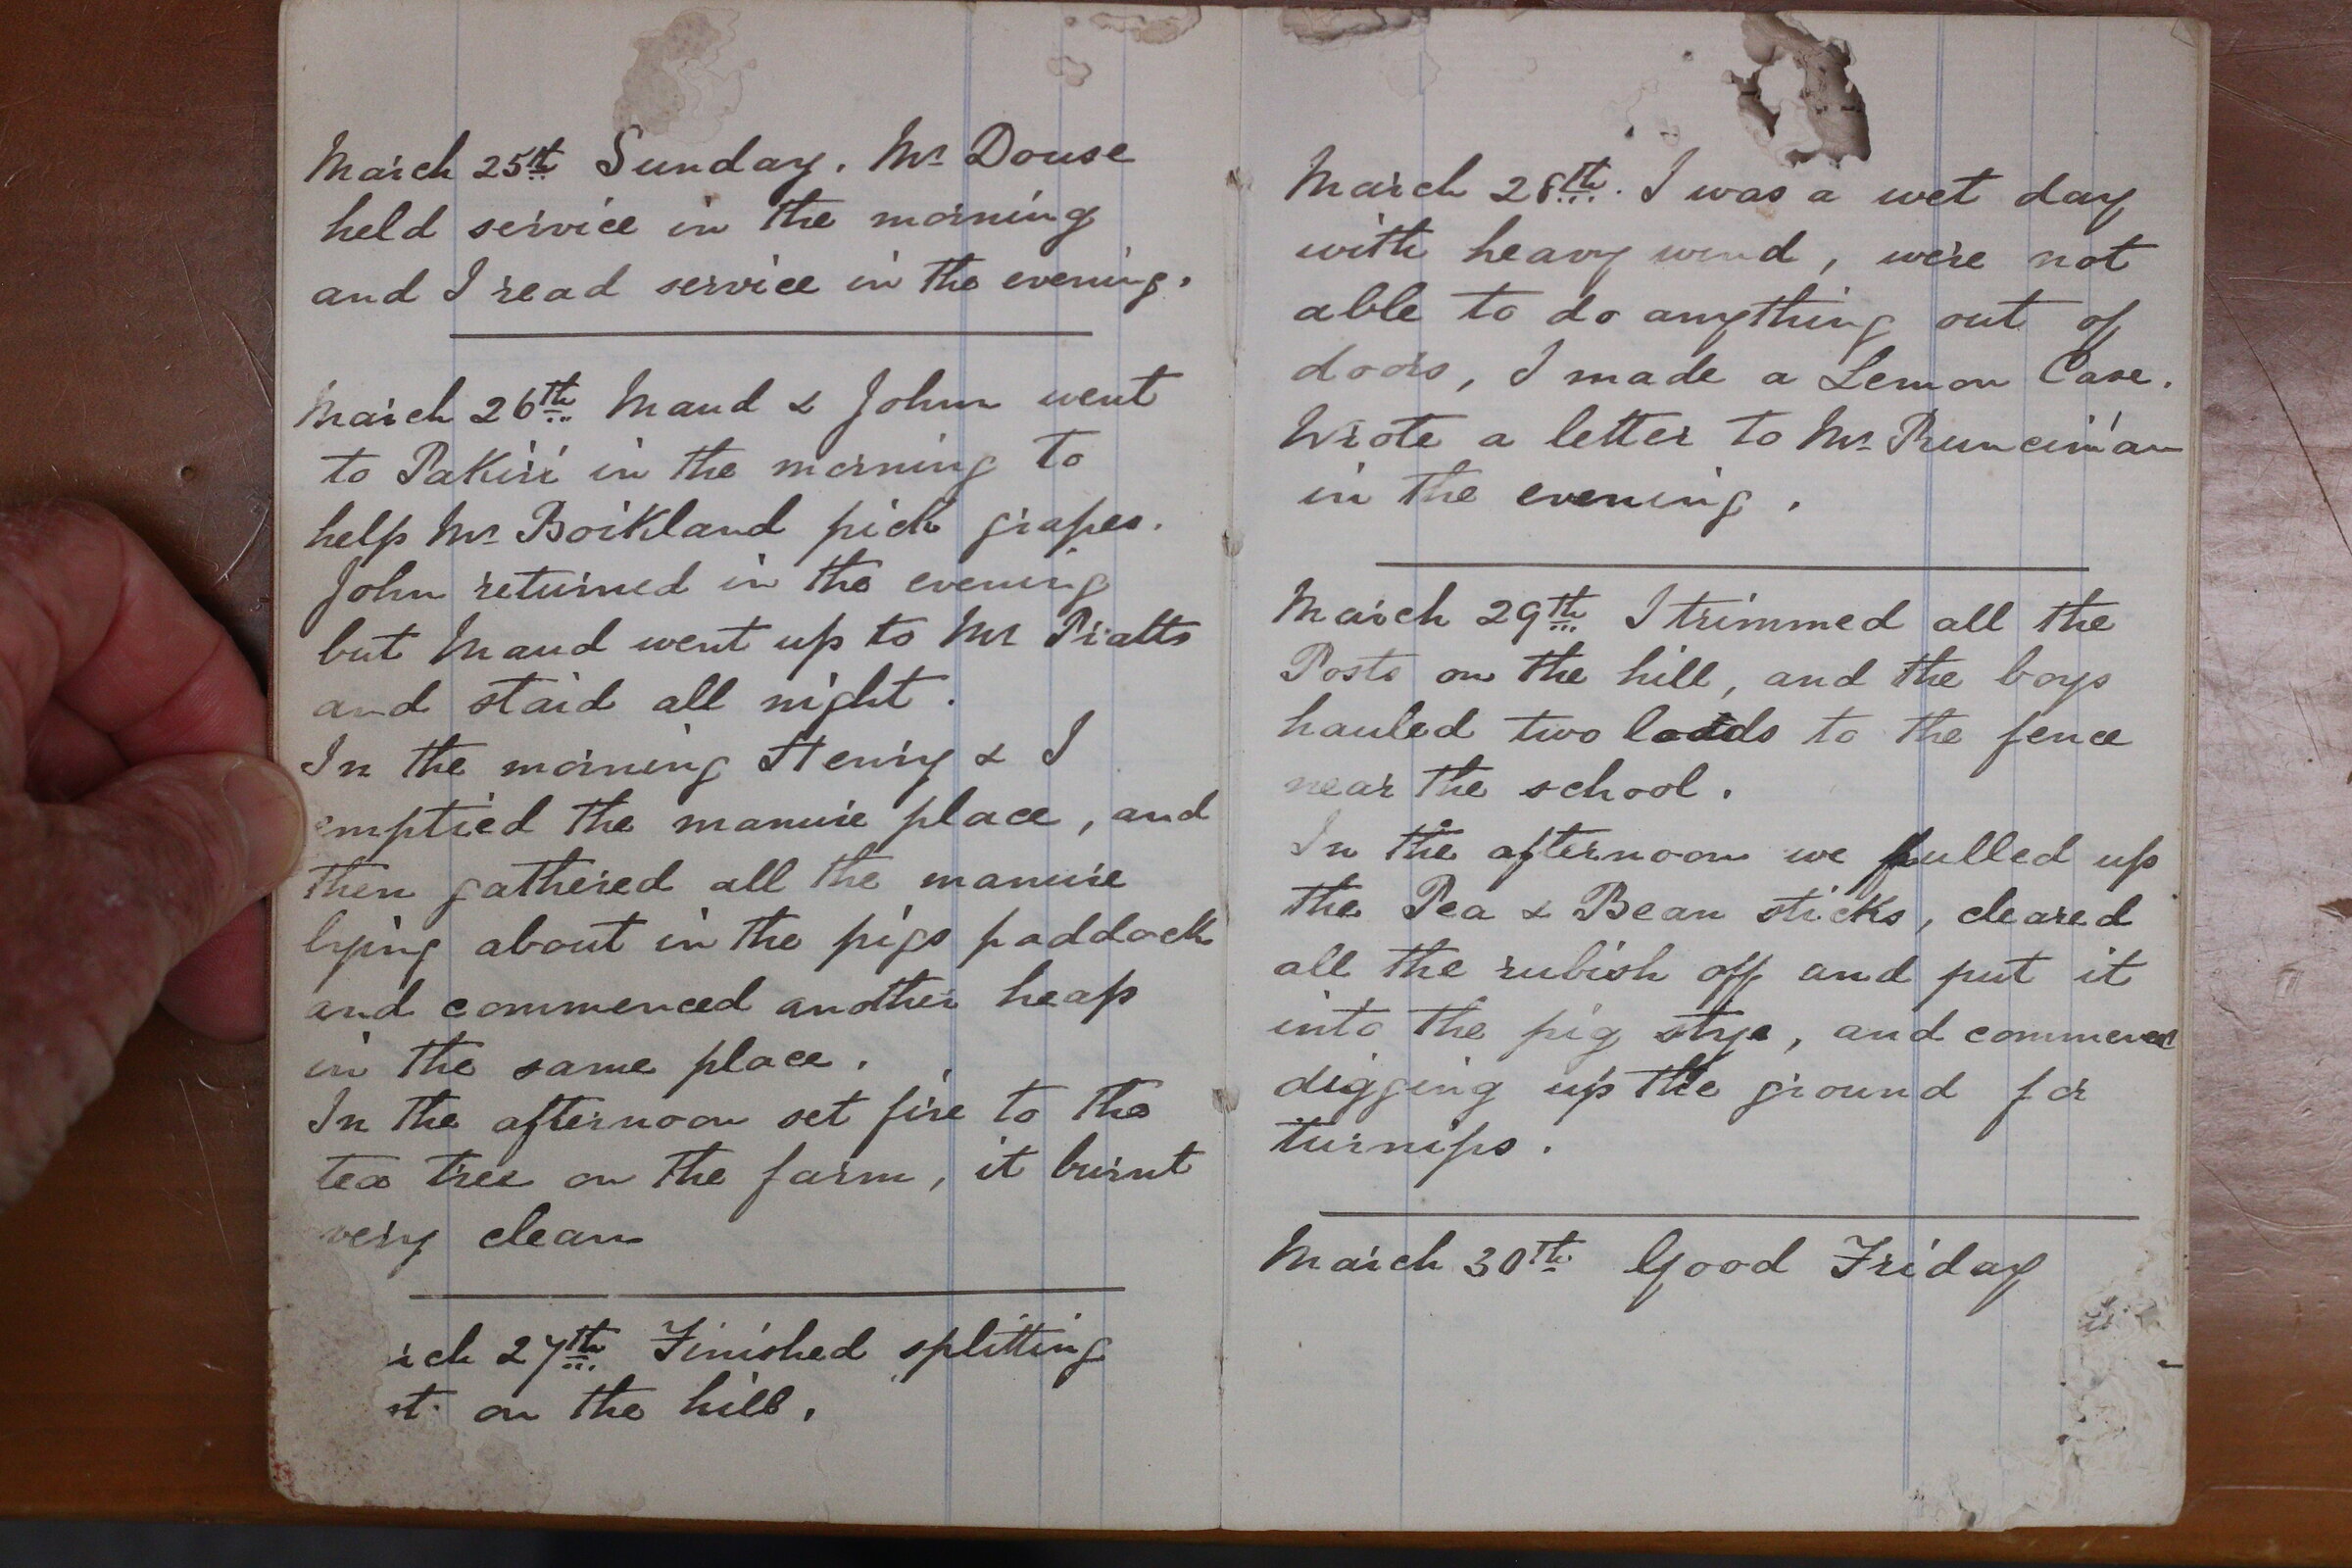 March 25th Sunday. Mr Douse
held service in the morning
and I read service in the evening.
March 26th Maud & John went
to Pakiri in the morning to
help Mr Boikland pick grapes.
John returned in the evening
but Maud went up to Mr Pratts
and staid all night.
In the morning Henry & I
emptied the manure place, and
then gathered all the manure
lying about in the pigs paddock
and commenced another heap
in the same place.
In the afternoon set fire to the
tea tree on the farm, it burnt
very clean
rch 27th Finished splitting
st on the hill.
March 28th. I was a wet day
with heavy wind, were not
able to do anything out of
doors, I made a Lemon Case.
Wrote a letter to Mr Runciman
in the evening.
March 29th I trimmed all the
Posts on the hill, and the boys
hauled two loads to the fence
near the school.
In the afternoon we pulled up
the Pea & Bean sticks, cleared
all the rubish off and put it
into the pig stye, and commenced
digging up the ground for
turnips.
March 30th Good Friday